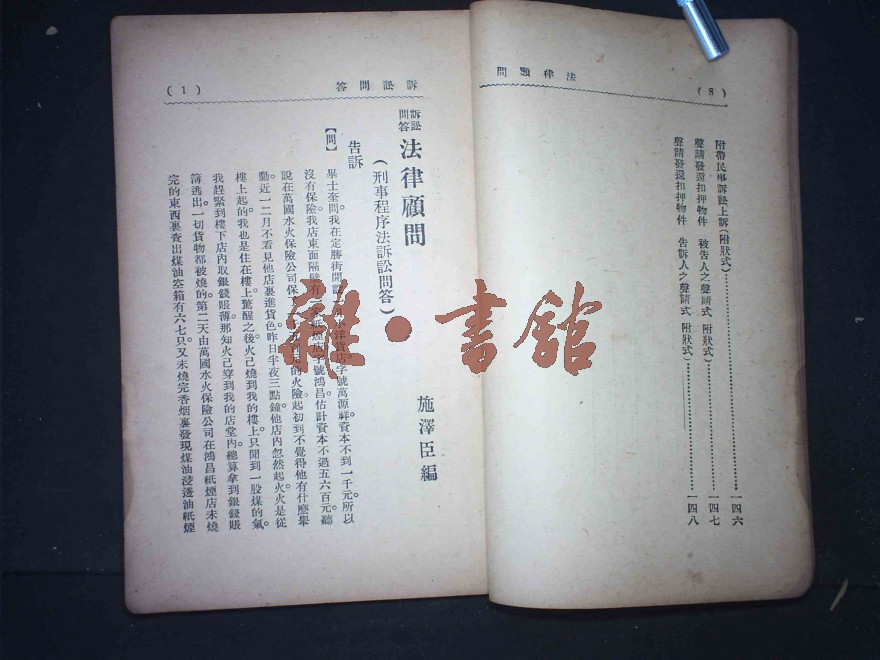 法律顧問
(8)
附帶民事訴訟上訴(附狀式)…………一四六
聲請發還扣押物件 被告人之聲請式 附狀式)…………一四七
聲請發還扣押物件 告訴人之聲請式 附狀式)…………一四八
訴訟問答
(1)
訴訟問答 法律顧問
(刑事程序法訴訟問答)
施澤臣編
告訴
【問】 畢士奎問我在定勝街開設 洋貨店字號萬源祥資本不到一千元。所以
沒有保險。我店東面隔壁有 紙煙店字號鴻昌。估計資本不過五六百元。聽
說在萬國水火保險公司保 元的火險。起初到不覺得他有什麽舉
動。近一二月不看見他店裏進貨色。昨日半夜三點鐘他店內忽然起火。火是從
樓上起的。我也是住在樓上。驚醒之後。火已燒到我的樓上。只聞到一股煤的氣。
我趕緊到樓下店內取銀錢賬薄。那知火已穿到我的店堂內。總算拿到銀錢賬
簿逃出。一切貨物都被燒的。第二天由萬國水火保險公司在鴻昌紙煙店未燒
完的東西裏查出煤油空箱有六七只。又未燒完香烟裏發現煤油浸透油紙煙
雜·書館